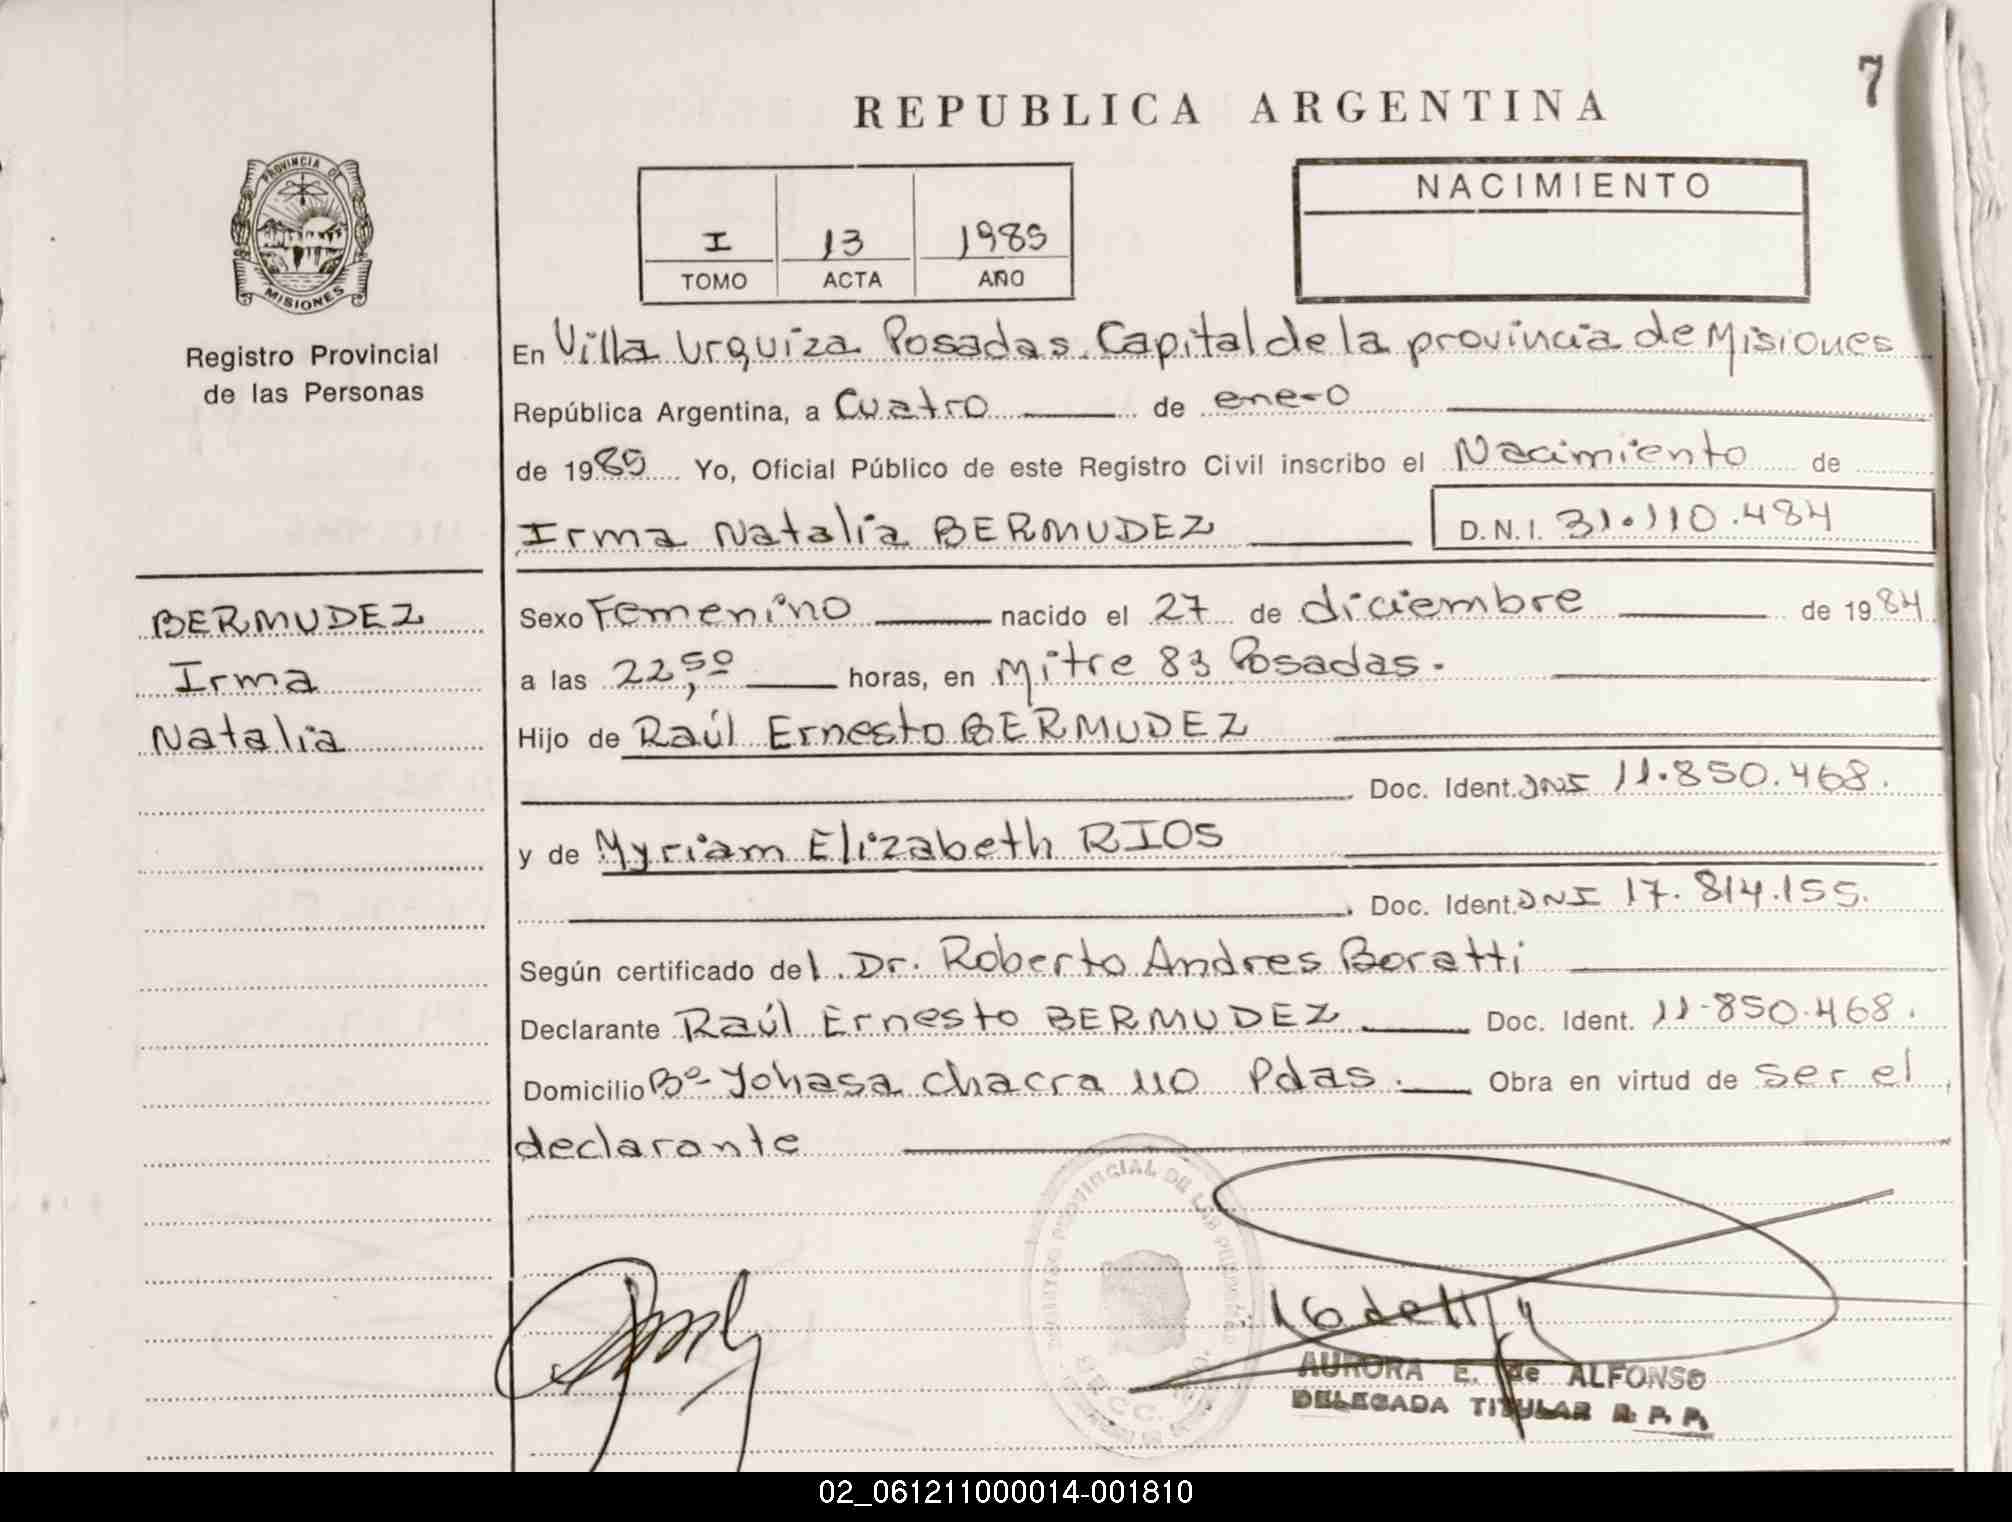 7
REPUBLICA ARGENTINA
PROVINCIA DE
MISIONES
Registro Provincial
de las Personas
I 13 1985
TOMO ACTA AÑO
NACIMIENTO
En Villa Urquiza Posadas Capital de la provincia de Misiones
República Argentina, a Cuatro de enero
de 1985 Yo, Oficial Público de este Registro Civil inscribo el Nacimiento de
Irma Natalia BERMUDEZ D.N.I. 31.110.484
BERMUDEZ
Irma
Natalia
Sexo Femenino nacido el 27 de diciembre de 1984
a las 22,50 horas, en Mitre 83 Posadas.
Hijo de Raúl Ernesto BERMUDEZ
Doc. Ident. DNI 11.850.468.
y de Myriam Elizabeth RIOS
Doc. Ident. DNI 17.814.155.
Según certificado del Dr. Roberto Andres Boratti
Declarante Raúl Ernesto BERMUDEZ Doc. Ident. 11.850.468.
Domicilio Bº Yohasa chacra 110 Pdas. Obra en virtud de ser el
declarante
AURORA E. de ALFONSO
DELEGADA TITULAR R. P. P.
02_061211000014-001810